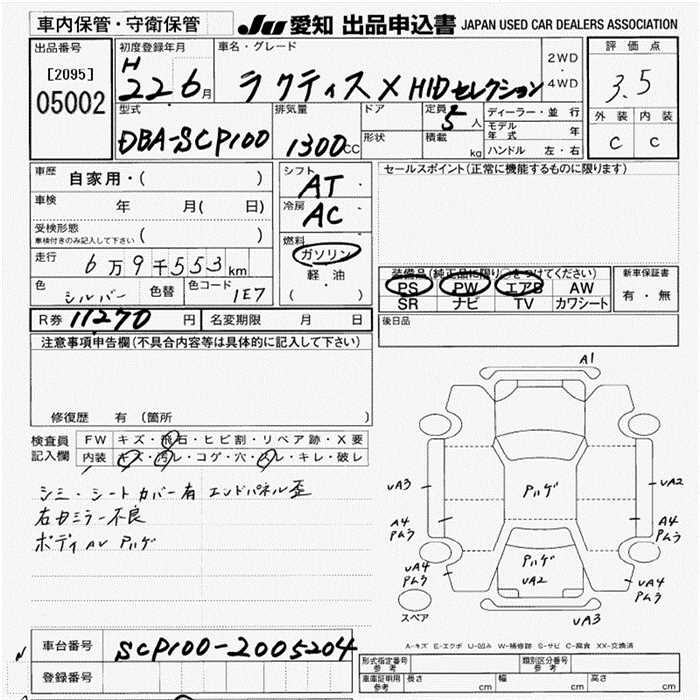 車内保管・守衛保管
JU 愛知 出品申込書 JAPAN USED CAR DEALERS ASSOCIATION
出品番号
[2095]
05002
初度登録年月
H
22 6月
車名・グレード
ラクティス X HIDセレクション
2WD
・
4WD
評価点
3.5
外装 内装
C C
型式
DBA-SCP100
排気量
1300cc
ドア
形状
定員
5人
積載
kg
ディーラー・並行
モデル年式 年
ハンドル 左・右
車歴
自家用・( )
車検
年 月( 日)
受検形態
車検付きのみ記入して下さい ( )
走行
6万9千553km
色
シルバー
色替
色コード
1E7
シフト
AT
冷房
AC
燃料
ガソリン
軽油
( ・ )
セールスポイント(正常に機能するものに限ります)
装備品(純正品に限り○をつけてください)
PS PW エアB AW
SR ナビ TV カワシート
新車保証書
有・無
R券 11270 円
名変期限 月 日
後日品
注意事項申告欄(不具合内容等は具体的に記入して下さい)
修復歴 有 (箇所 )
検査員
記入欄
FW キズ・飛石・ヒビ割・リペア跡・X要
内装 キズ・汚レ・コゲ・穴・ハレ・キレ・破レ
シミ・シートカバー有 エンドパネル歪
右ドミラー不良
ボディAU Pハゲ
A1
UA3
UA2
Pハゲ
A4
Pムラ
A4
Pムラ
Pハゲ
UA2
UA4
Pムラ
UA4
Pムラ
スペア
UA3
A-キズ E-エクボ U-凹み W-補修跡 S-サビ C-腐食 XX-交換済
車台番号
SCP100-2005204
登録番号
形式指定番号
参考
類別区分番号
参考
車庫証明用
参考
長さ cm
幅 cm
高さ cm